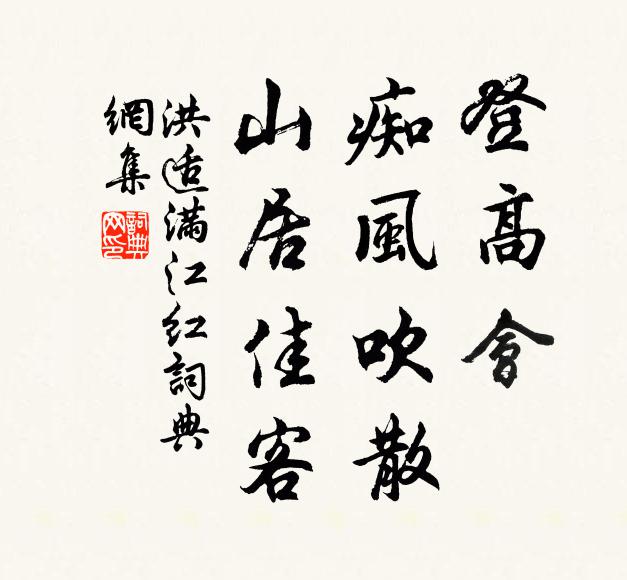 登高會
痴風吹散
山居佳客
洪适滿江紅詞典
網集
詞典
网印